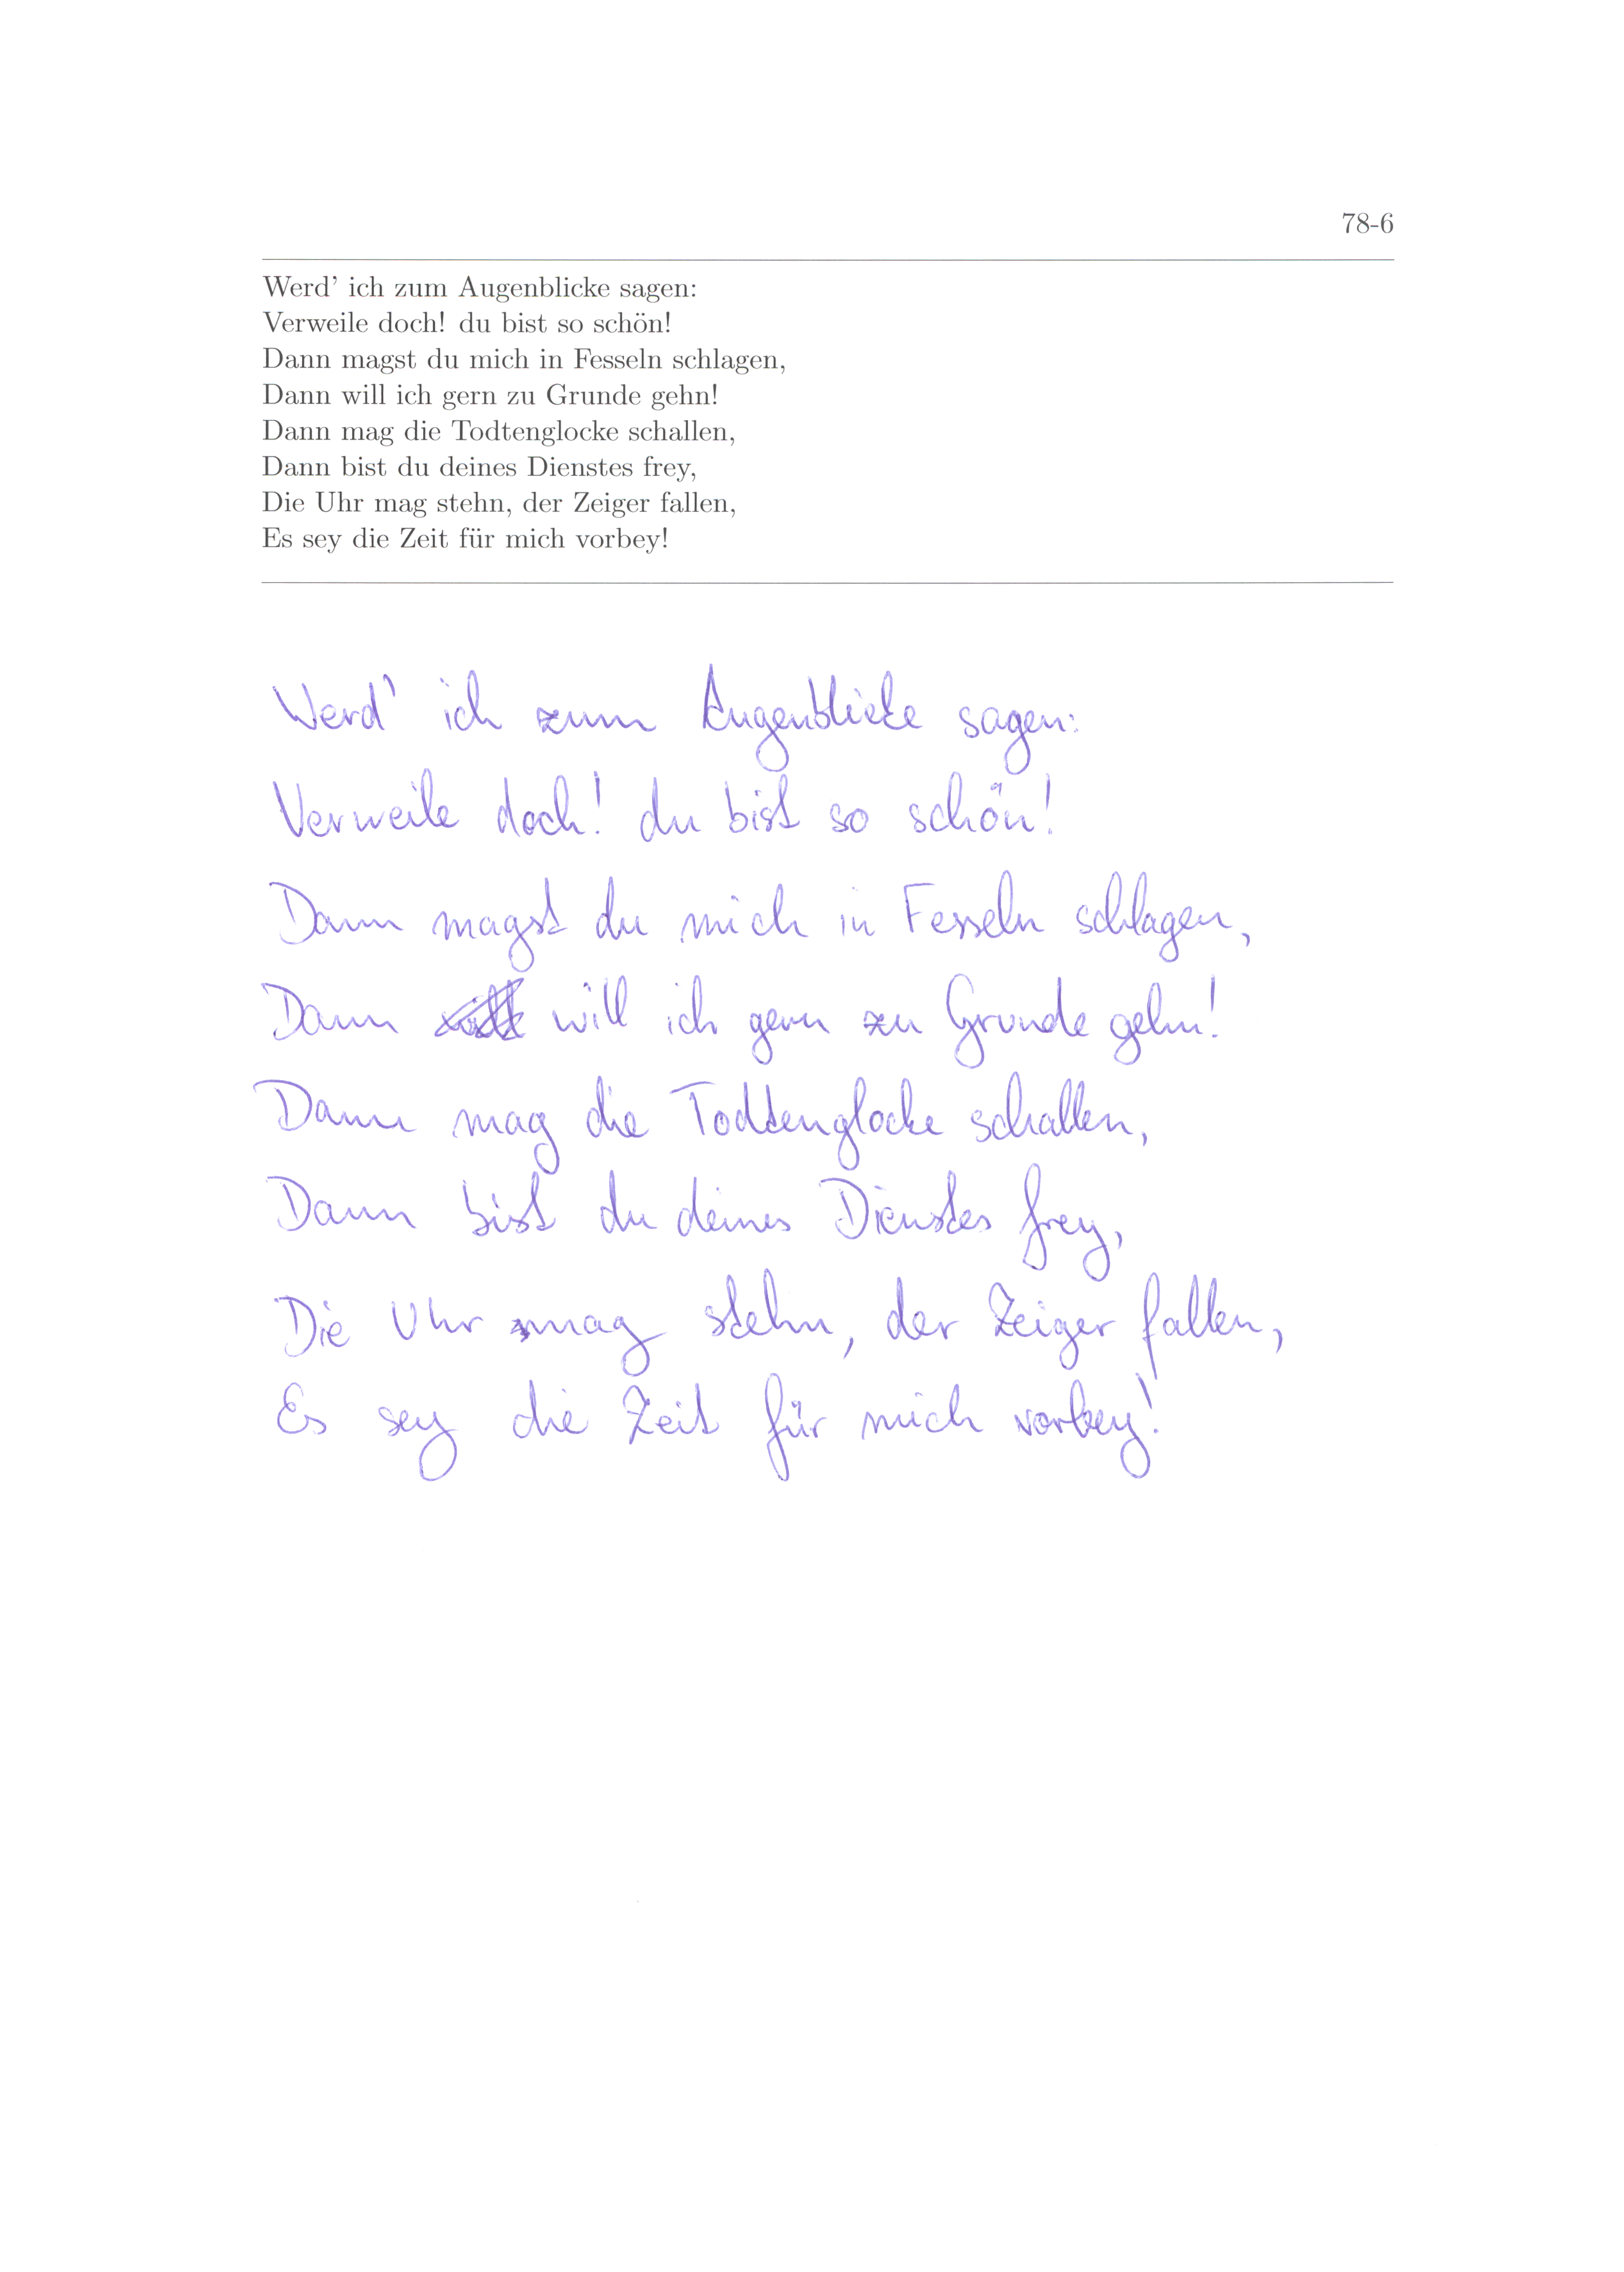 78-6
Werd' ich zum Augenblicke sagen:
Verweile doch! du bist so schön!
Dann magst du mich in Fesseln schlagen,
Dann will ich gern zu Grunde gehn!
Dann mag die Todtenglocke schallen,
Dann bist du deines Dienstes frey,
Die Uhr mag stehn, der Zeiger fallen,
Es sey die Zeit für mich vorbey!
Werd' ich zum Augenblicke sagen:
Verweile doch! du bist so schön!
Dann magst du mich in Fesseln schlagen,
Dann will ich gern zu Grunde gehn!
Dann mag die Todtenglocke schallen,
Dann bist du deines Dienstes frey,
Die Uhr mag stehn, der Zeiger fallen,
Es sey die Zeit für mich vorbey!